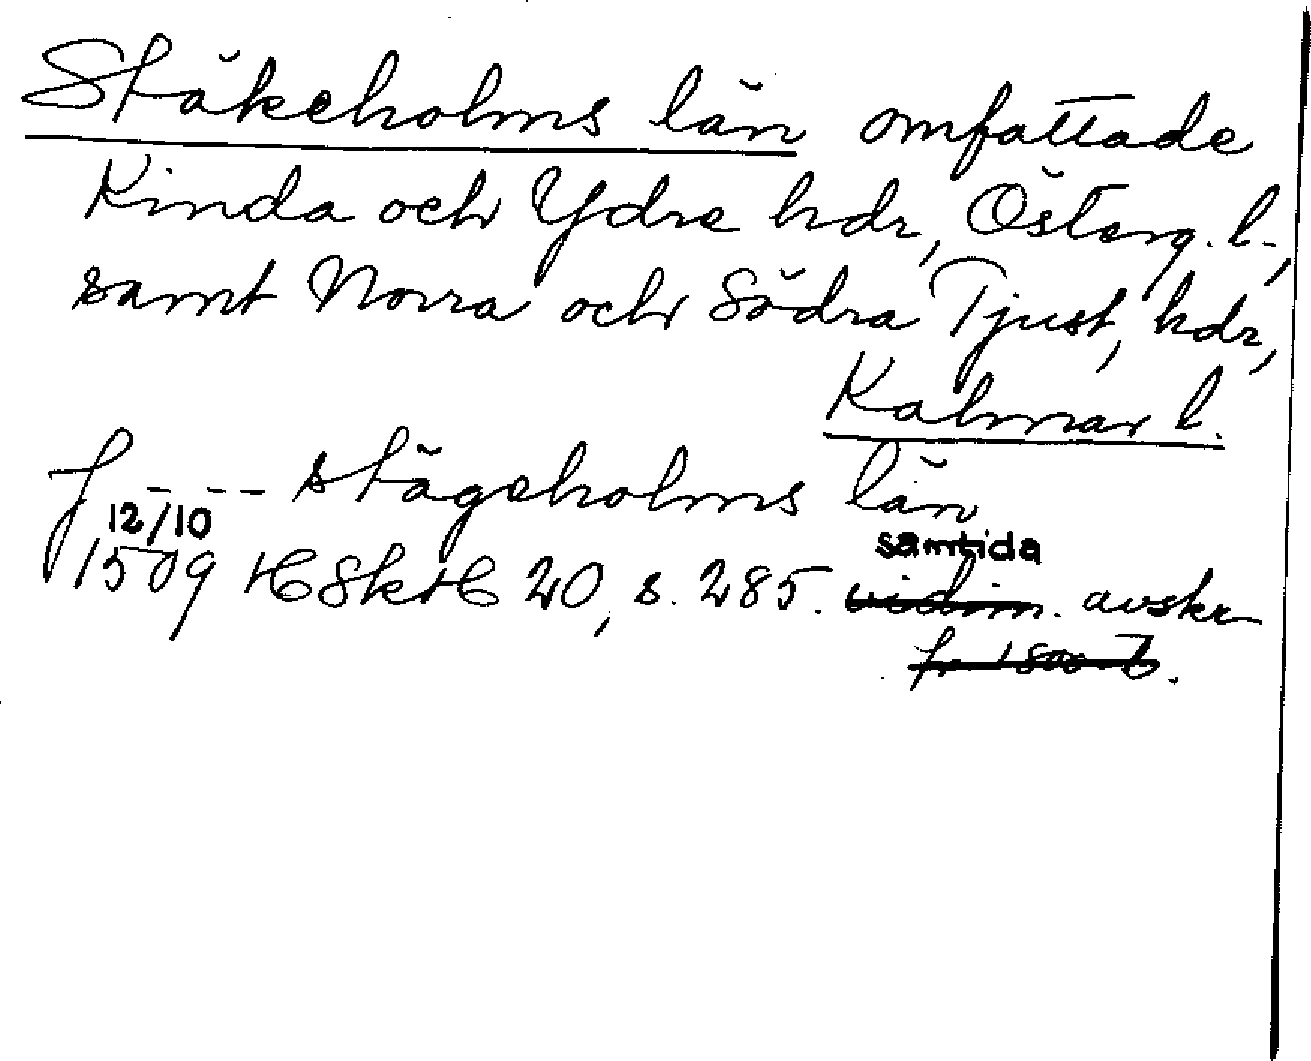 Stäkeholms län omfattade
Kinda och Ydre hdr, Österg. l.,
samt Norra och Södra Tjust, hdr,
Kalmar l.
J --- stägeholms län
12/10 samtida
1509 HSkH 20, s. 285. vidim. avskr
fr 1800-t.